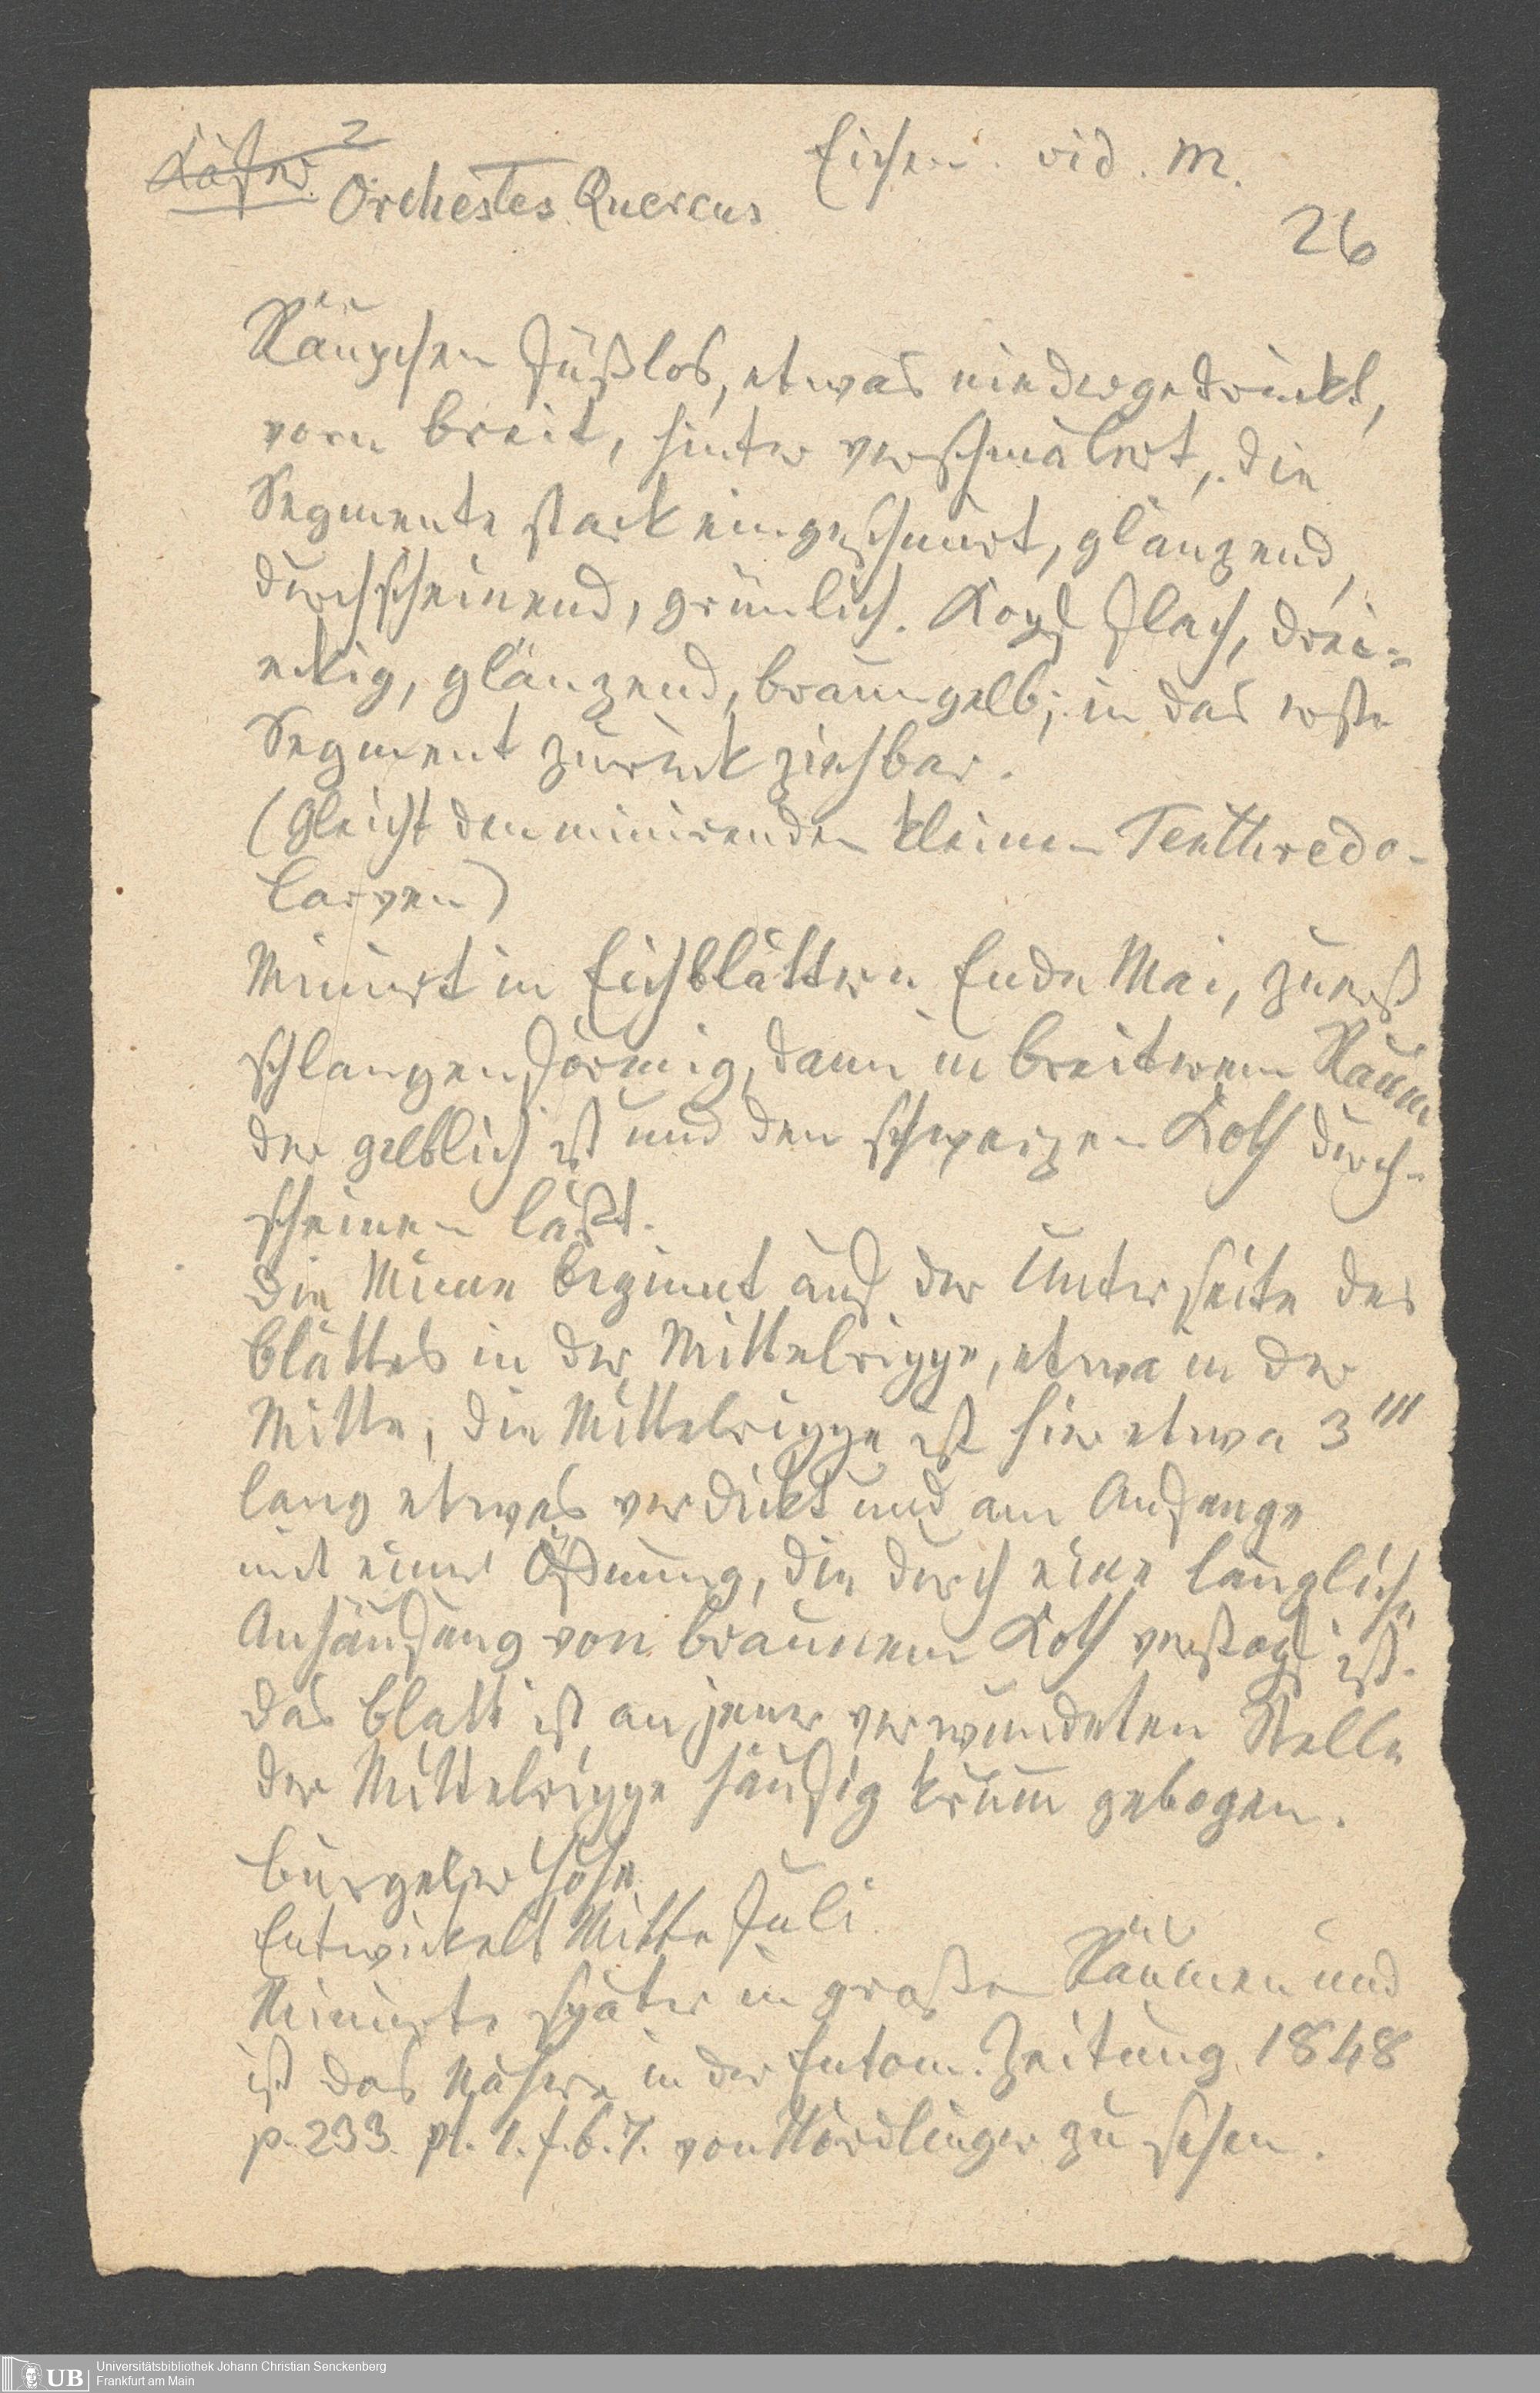 Käfer 2
Eichen. vid. m.
Orchestes Quercus
26
Räupchen fußlos, etwas niedergedrückt,
vorn breit, hinter verschmälert, die
Segmente stark eingeschnürt, glänzend,
durchscheinend, grünlich. Kopf flach, drei-
eckig, glänzend, braungelb; in das erste
Segment zurück ziehbar.
(Gleicht den minirenden kleinen Tenthredo-
larven)
Minirt in Eichblättern Ende Mai, zuerst
schlangenförmig, dann in breiterem Raum
der gelblich ist und den schwarzen Koth durch-
scheinen läßt.
Die Mine beginnt auf der Unterseite des
Blattes in der Mittelrippe, etwa in der
Mitte, die Mittelrippe ist hier etwa 3'''
lang etwas verdickt und am Anfange
mit einer Öffnung, die durch eine längliche
Anhäufung von braunem Koth verstopft ist.
Das Blatt ist an jener verwundeten Stelle
der Mittelrippe häufig krumm gebogen.
Bürgeler Höhe
Entwickelt Mitte Juli
Minirte später in großen Räumen und
ist das Nähere in der Entom. Zeitung 1848
p. 233. pl. 1. f. 6. 7. von Nördlinger zu sehen.
UB
Universitätsbibliothek Johann Christian Senckenberg
Frankfurt am Main